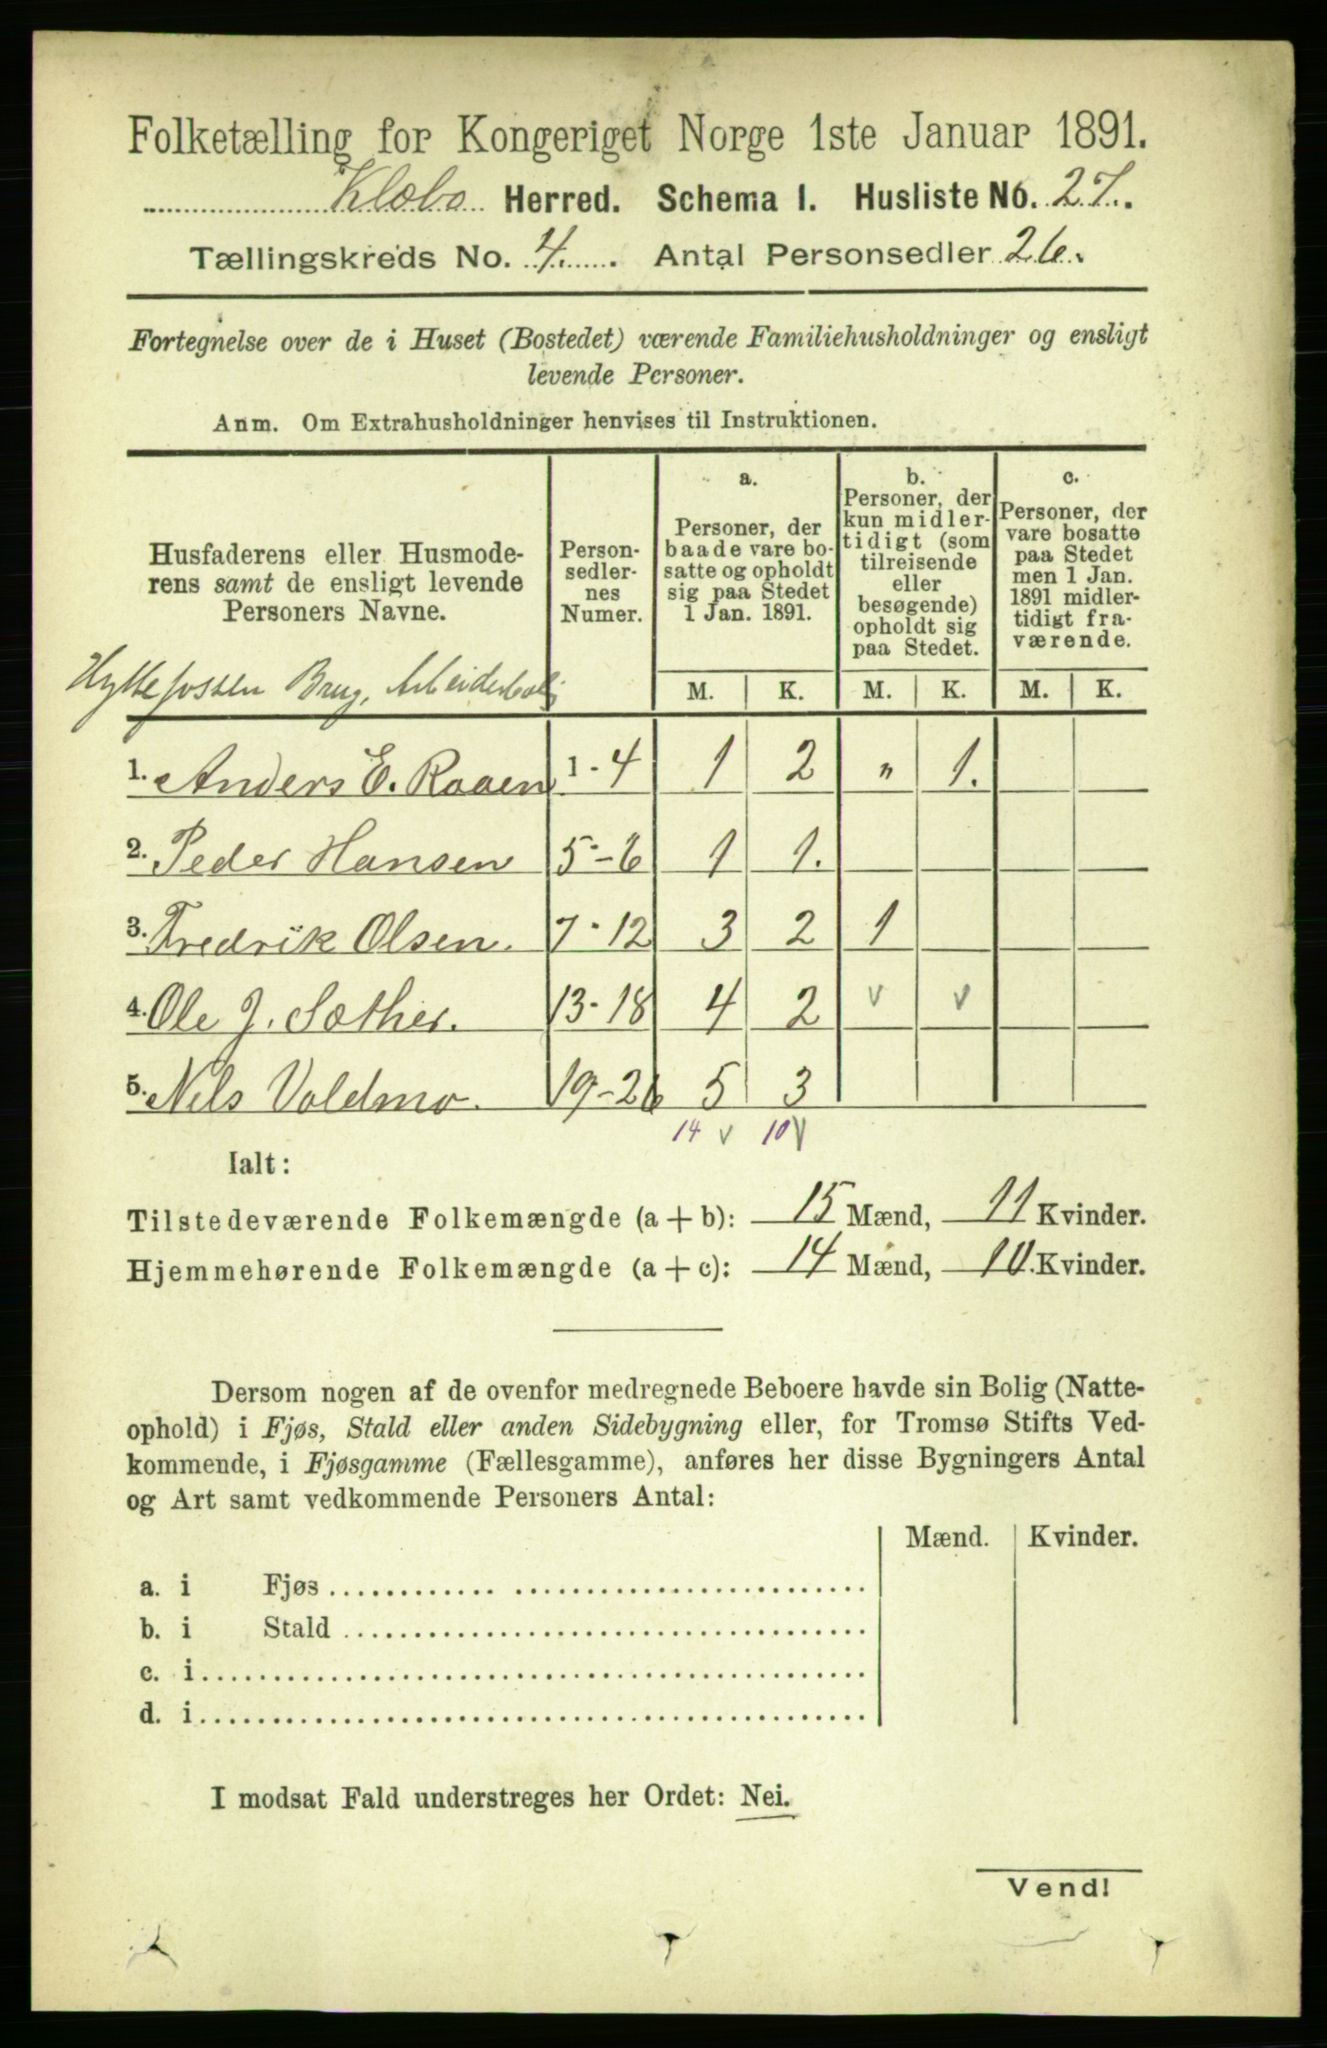 Folketælling for Kongeriget Norge 1ste Januar 1891.
Klæbo Herred. Schema I. Husliste No. 27.
Tællingskreds No. 4. Antal Personsedler 26.
Fortegnelse over de i Huset (Bostedet) værende Familiehusholdninger og ensligt
levende Personer.
Anm. Om Extrahusholdninger henvises til Instruktionen.
Husfaderens eller Husmode-
rens samt de ensligt levende
Personers Navne.
Person-
sedler-
nes
Numer.
a.
Personer, der
baade vare bo-
satte og opholdt
sig paa Stedet
1 Jan. 1891.
b.
Personer, der
kun midler-
tidigt (som
tilreisende
eller
besøgende)
opholdt sig
paa Stedet.
c.
Personer, der
vare bosatte
paa Stedet
men 1 Jan.
1891 midler-
tidigt fra-
værende.
Hyttefossen Brug, Arbeiderbolig
M. K. M. K. M. K.
1. Anders E. Raaen 1-4 1 2 " 1.
2. Peder Hansen 5-6 1 1.
3. Fredrik Olsen. 7-12 3 2 1
4. Ole J. Sæther. 13-18 4 2 v v
5. Nils Voldmo. 19-26 5 3
14 v 10 v
Ialt:
Tilstedeværende Folkemængde (a + b): 15 Mænd, 11 Kvinder.
Hjemmehørende Folkemængde (a + c): 14 Mænd, 10. Kvinder.
Dersom nogen af de ovenfor medregnede Beboere havde sin Bolig (Natte-
ophold) i Fjøs, Stald eller anden Sidebygning eller, for Tromsø Stifts Ved-
kommende, i Fjøsgamme (Fællesgamme), anføres her disse Bygningers Antal
og Art samt vedkommende Personers Antal:
Mænd. Kvinder.
a. i Fjøs
b. i Stald
c. i
d. i
I modsat Fald understreges her Ordet: Nei.
Vend!